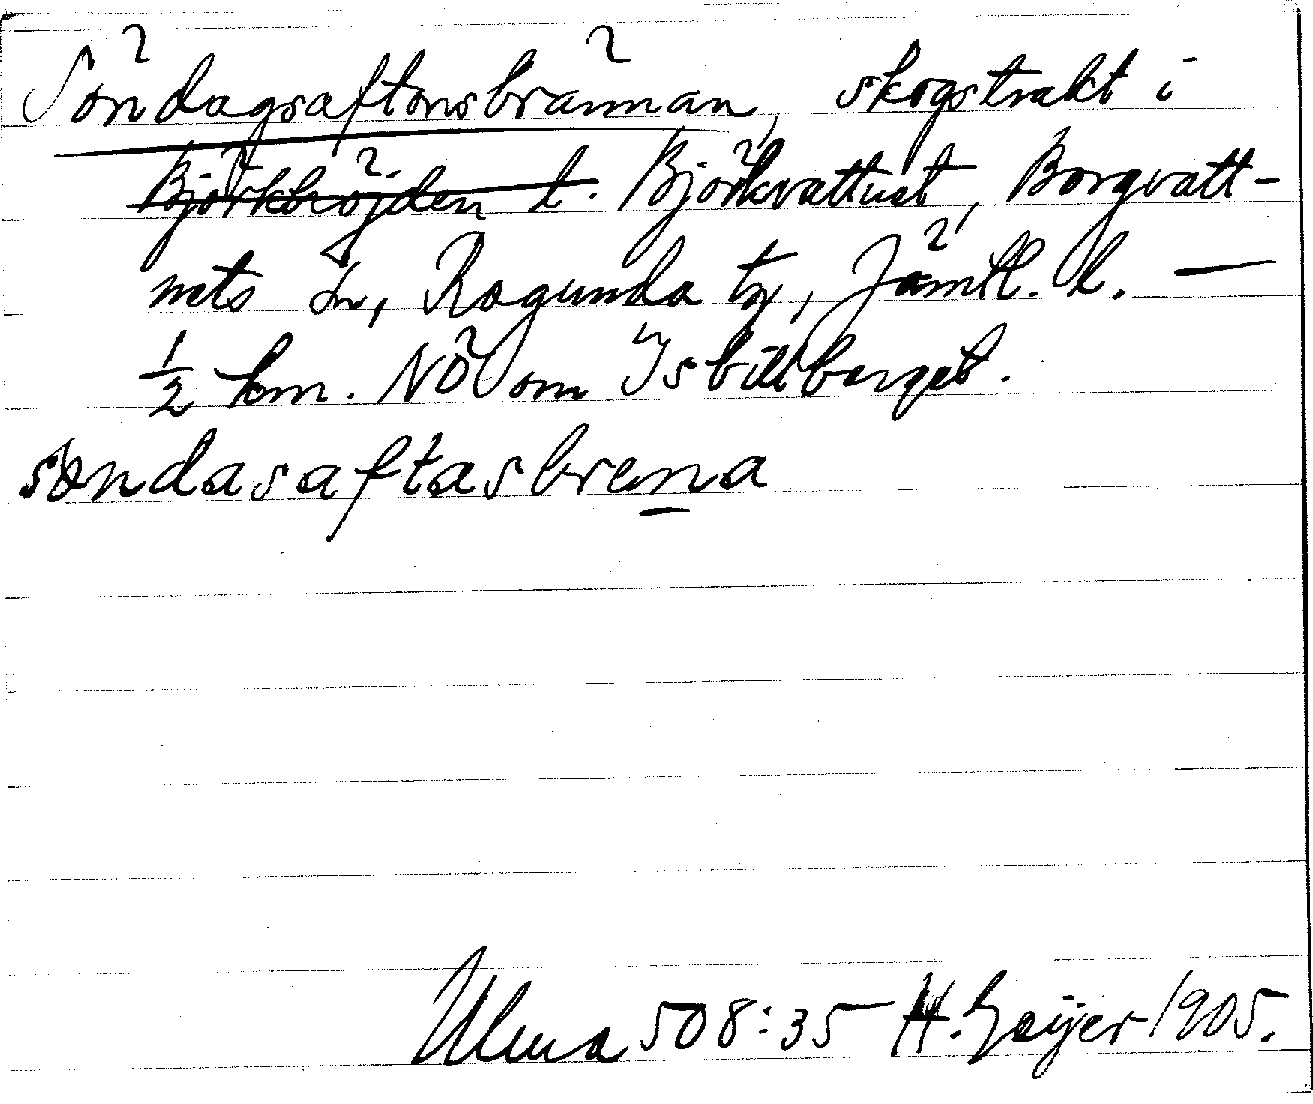 Söndagsaftonsbrännan, skogstrakt i
Björkhöjden l. Björkvattnet, Borgvatt-
nets sn, Ragunda tg, Jämtl. l. —
½ km. NÖ om Isbillberget.
søndasaftasbrena
Ulma 508:35 H. Geijer 1905.